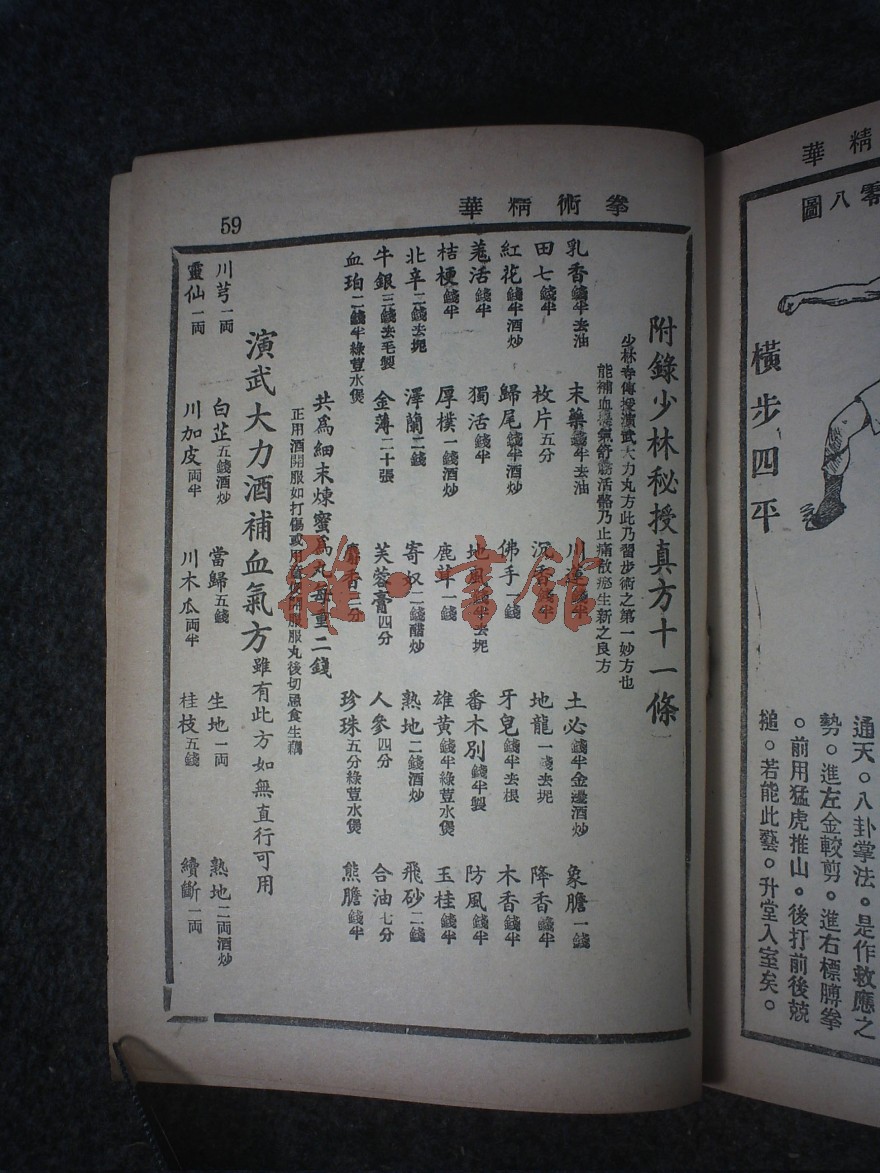 零八圖
橫步四平
通天。八卦掌法。是作救應之
勢。進左金較剪。進右標膊拳
。前用猛虎推山。後打前後兢
搥。若能此藝。升堂入室矣。
拳術精華
59
附錄少林秘授真方十一條
少林寺傳授演武大力丸方此乃習步術之第一妙方也
能補血 氣舒筋活骼乃止痛散瘀生新之良方
乳香錢半去油 末藥錢半去油 川連錢半 土必錢半金邊酒炒 象膽一錢
田七錢半 枚片五分 沉香錢半 地龍一錢去坭 降香錢半
紅花錢半酒炒 歸尾錢半酒炒 佛手一錢 牙皂錢半去根 木香錢半
羗活錢半 獨活錢半 地風錢半去坭 番木別錢半製 防風錢半
桔梗錢半 厚樸一錢酒炒 鹿茸一錢 雄黃錢半綠荳水煲 玉桂錢半
北辛二錢去坭 澤蘭二錢 寄奴二錢醋炒 熟地二錢酒炒 飛砂二錢
牛銀三錢去毛製 金薄二十張 芙蓉膏四分 人參四分 合油七分
血珀二錢半綠荳水煲 麝香二分 珍珠五分綠荳水煲 熊膽錢半
共為細末煉蜜為丸每重二錢
正用酒開服如打傷或用 便開服服丸後切忌食生藕
演武大力酒補血氣方雖有此方如無直行可用
川芎一両 白芷五錢酒炒 當歸五錢 生地一両 熟地二両酒炒
靈仙一両 川加皮両半 川木瓜両半 桂枝五錢 續斷一両
雜·書館